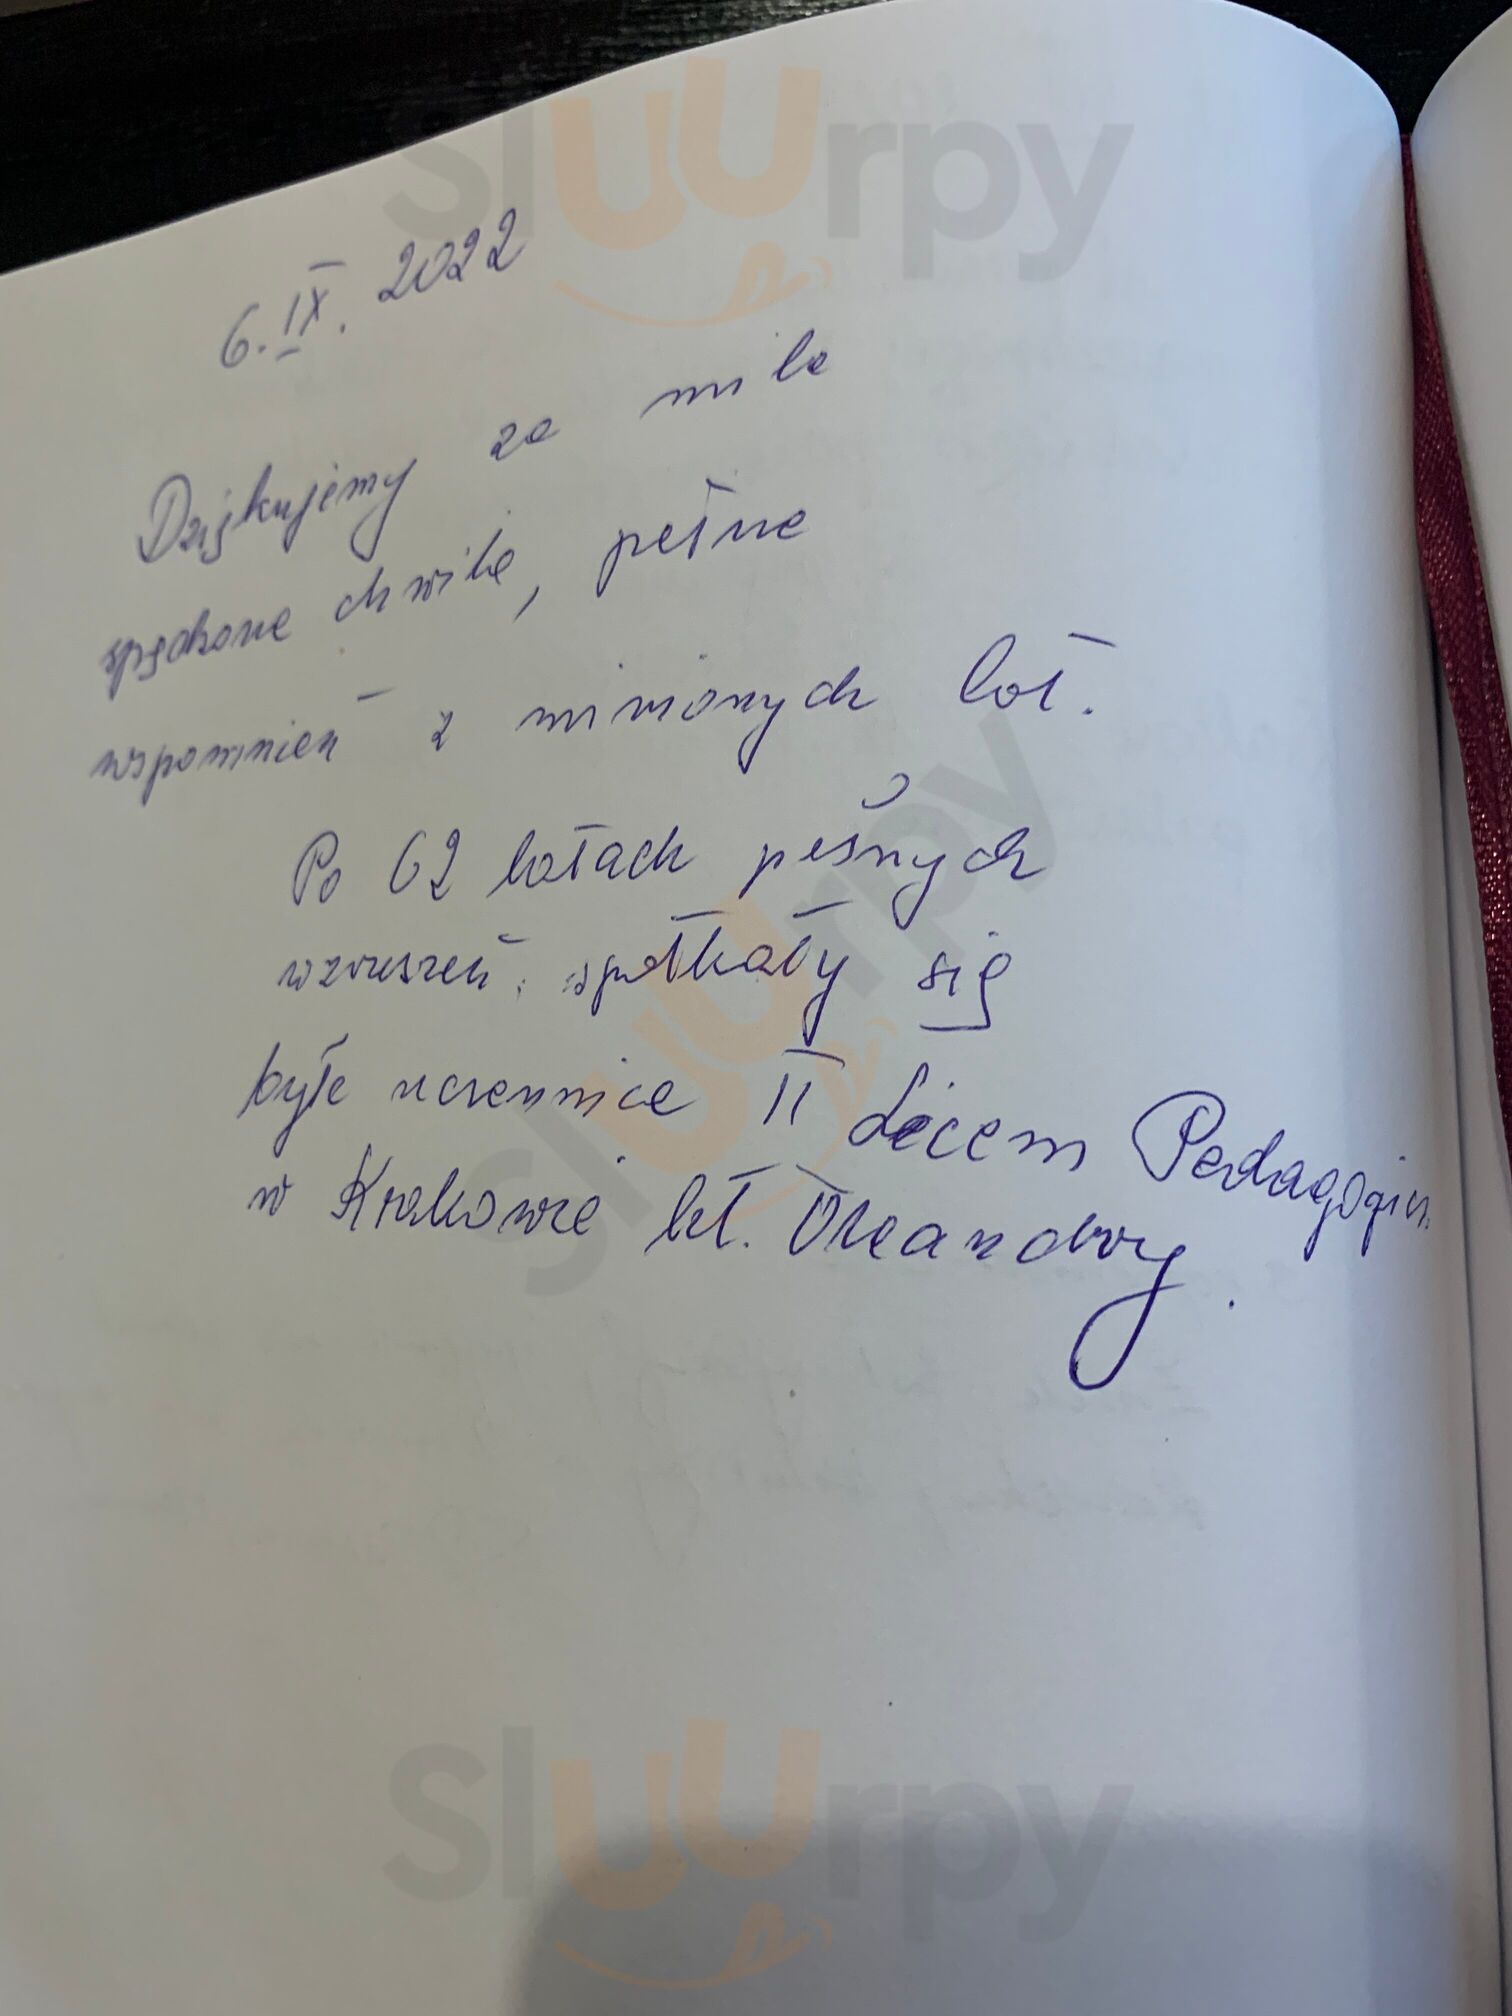 Sluurpy
6. IX. 2022
Dziękujemy za miłe
spędzone chwile, pełne
wspomnień z minionych lat.
Po 62 latach pełnych
wzruszeń, spotkały się
byłe uczennice II Liceum Pedagogicz.
w Krakowie kł. Oleandry.
Sluurpy
Sluurpy